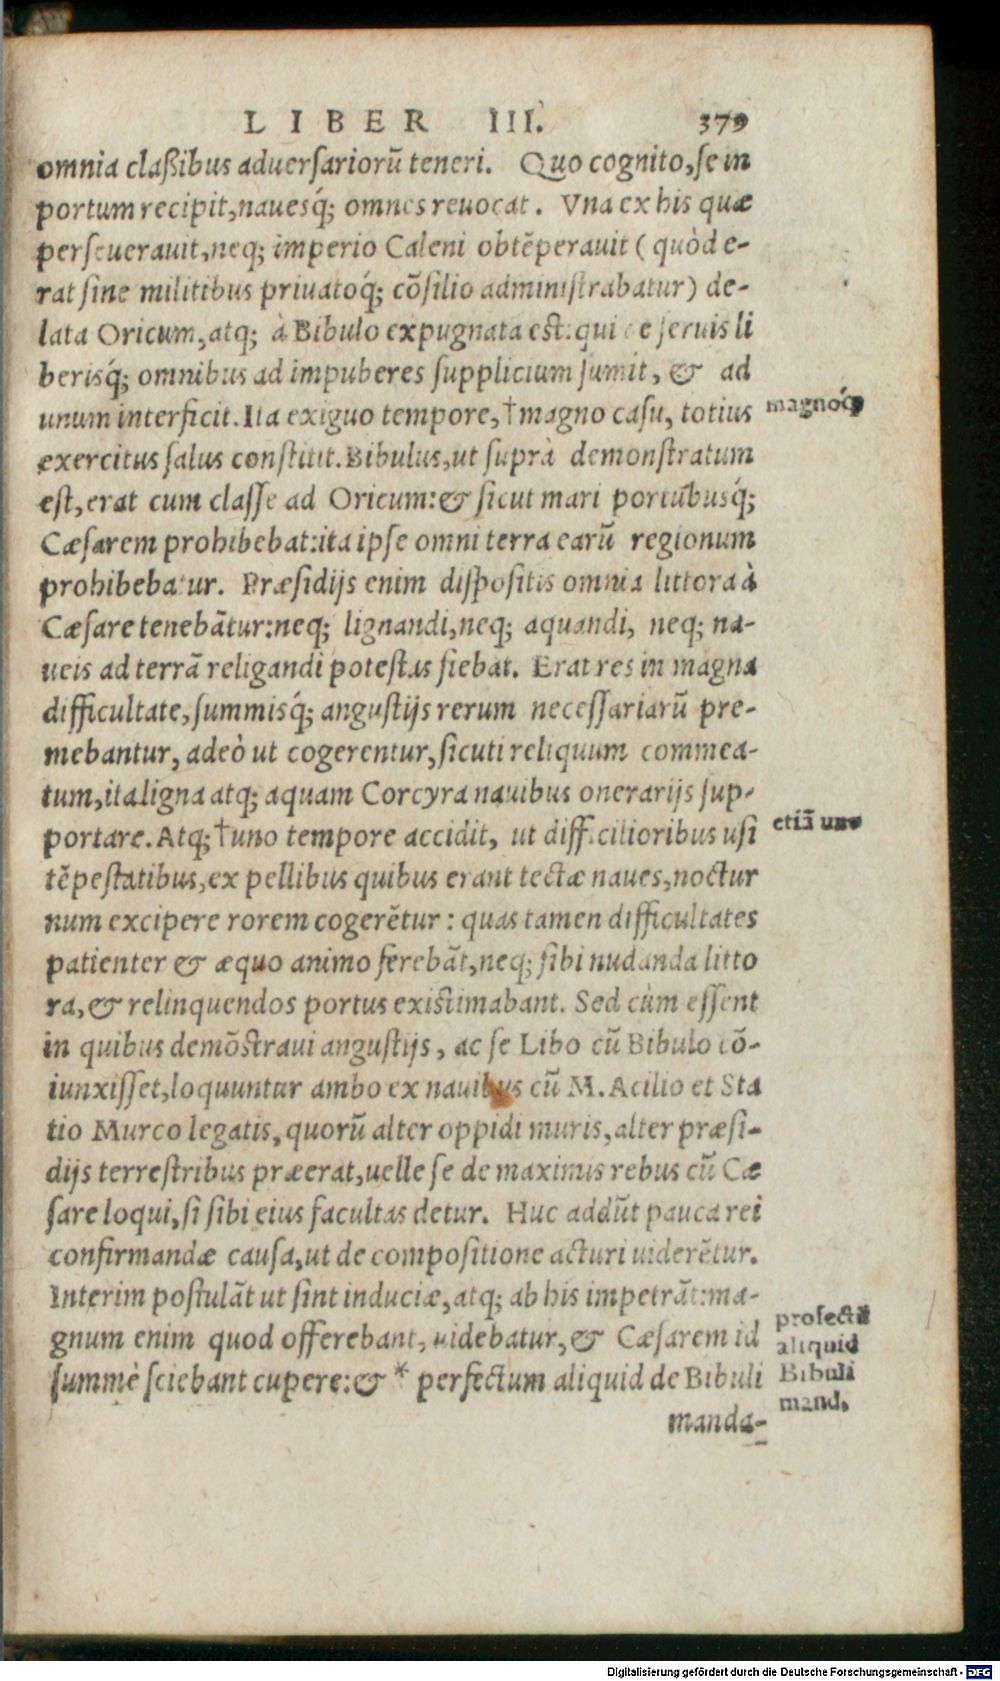 LIBER III. 379
omnia claßibus aduersariorū teneri. Quo cognito, se in
portum recipit, nauesq́; omnes reuocat. Vna ex his quæ
perseuerauit, neq; imperio Caleni obtēperauit (quòd e-
rat sine militibus priuatoq́; cōsilio administrabatur) de-
lata Oricum, atq; à Bibulo expugnata est: qui de seruis li
berisq́; omnibus ad impuberes supplicium sumit, & ad
unum interficit. Ita exiguo tempore, †magno casu, totius
magnoq́;
exercitus salus constitit. Bibulus, ut suprà demonstratum
est, erat cum classe ad Oricum: & sicut mari portubusq́;
Cæsarem prohibebat: ita ipse omni terra earū regionum
prohibebatur. Præsidijs enim dispositis omnia littora à
Cæsare tenebātur: neq; lignandi, neq; aquandi, neq; na-
ueis ad terrā religandi potestas fiebat. Erat res in magna
difficultate, summisq́; angustijs rerum necessariarū pre-
mebantur, adeò ut cogerentur, sicuti reliquum commea-
tum, ita ligna atq; aquam Corcyra nauibus onerarijs sup-
portare. Atq; †uno tempore accidit, ut difficilioribus usi
etiā uno
tēpestatibus, ex pellibus quibus erant tectæ naues, noctur
num excipere rorem cogerētur: quas tamen difficultates
patienter & æquo animo ferebāt, neq; sibi nudanda litto
ra, & relinquendos portus existimabant. Sed cùm essent
in quibus demōstraui angustijs, ac se Libo cū Bibulo cō-
iunxisset, loquuntur ambo ex nauibus cū M. Acilio et Sta
tio Murco legatis, quorū alter oppidi muris, alter præsi-
dijs terrestribus præerat, uelle se de maximis rebus cū Cæ
sare loqui, si sibi eius facultas detur. Huc addūt pauca rei
confirmandæ causa, ut de compositione acturi uiderētur.
Interim postulāt ut sint induciæ, atq; ab his impetrāt: ma-
gnum enim quod offerebant, uidebatur, & Cæsarem id
summè sciebant cupere: & * perfectum aliquid de Bibuli
profectū
aliquid
Bibuli
mand.
manda-
Digitalisierung gefördert durch die Deutsche Forschungsgemeinschaft - DFG